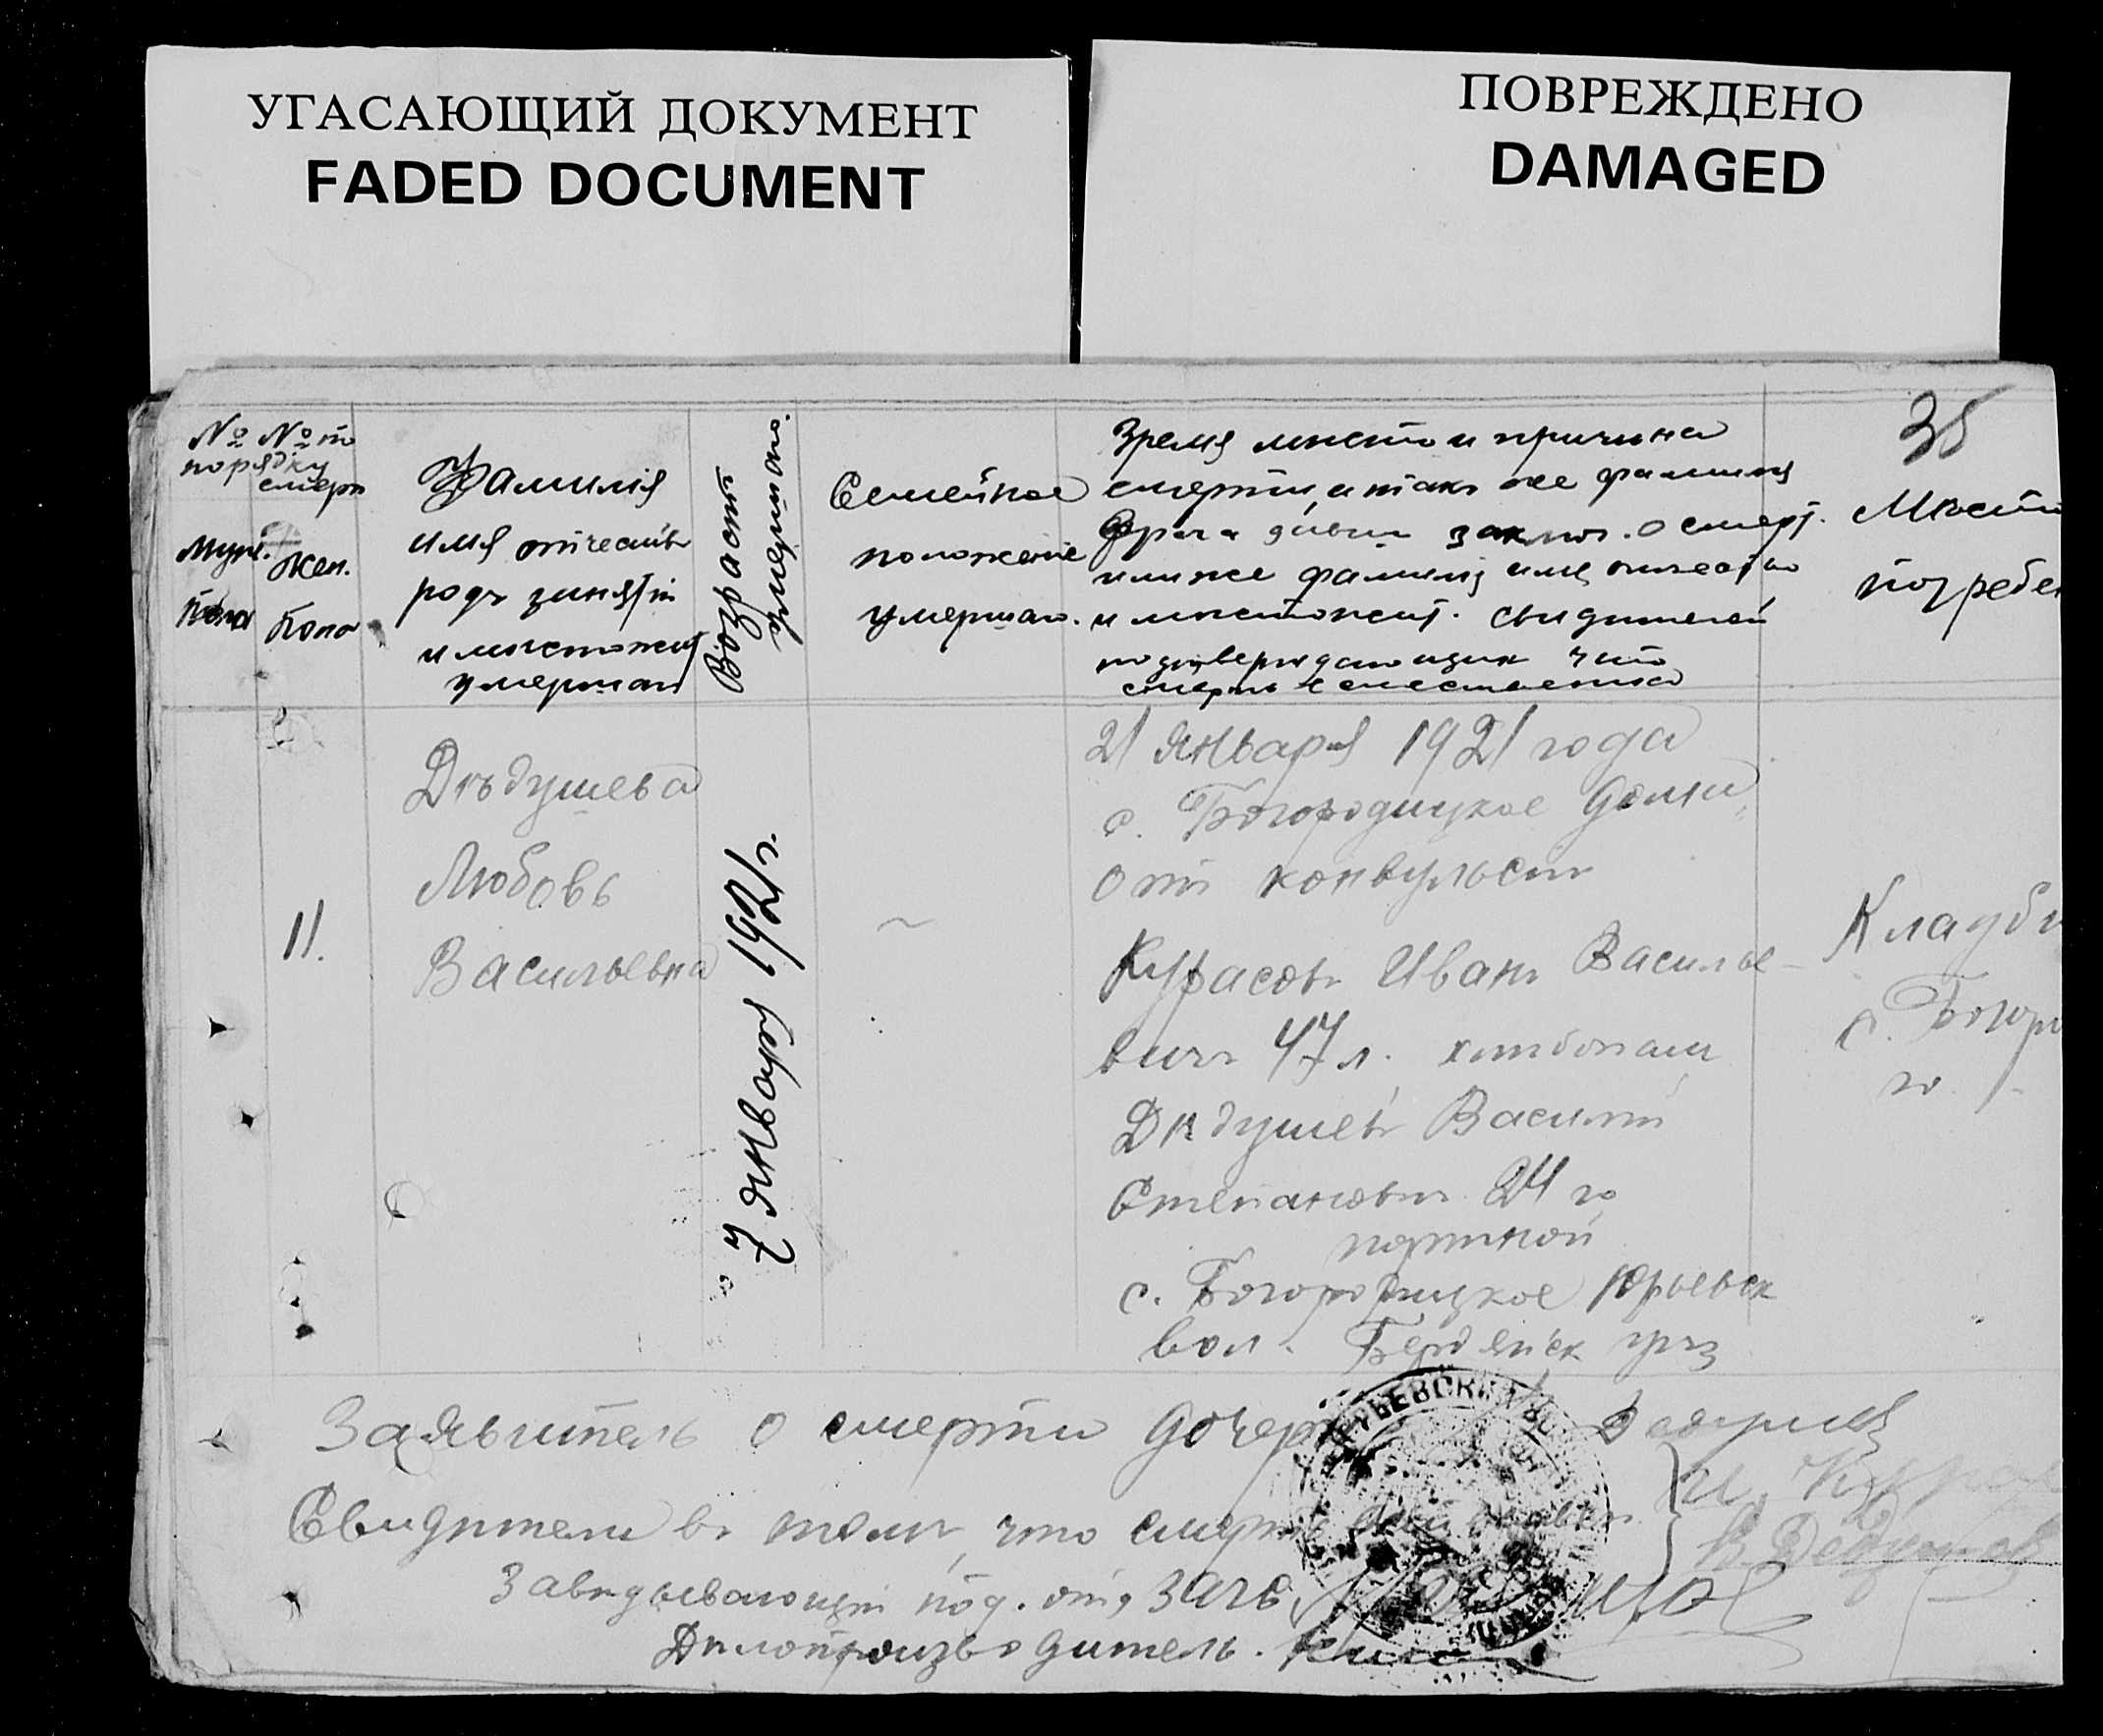 УГАСАЮЩИЙ ДОКУМЕНТ
FADED DOCUMENT
ПОВРЕЖДЕНО
DAMAGED
35
№ № по
порядку
смерт
Муж. Жен.
Пола Пола
Фамилія
имя отчество
родъ занятій
и местожит
умершаго
Возрастъ
умершаго.
Семейное
положеніе
умершаго.
Время место и причина
смерти а такъ же фамилія
врача давш заключ. о смерт.
или же фамилія имя отчество
и местожит. свидетелей
подтверждающихъ что
смерть естественна
Место
погребе
11.
Дѣдушева
Любовь
Васильевна
7 января 1921 г.
~
21 января 1921 года
с. Богородицкое дома
отъ конвульсіи
Курасовъ Иванъ Василье-
вичъ 47 л. хлебопаш
Дѣдушевъ Василій
Степановичъ 24 го
портной
с. Богородицкое Юрьевск
вол. Бердянск уѣз
Кладби
с. Богоро
го.
Заявитель о смерти дочери
Свидетели въ томъ, что смерть
И. Курас
В. Дедушев
Заведывающій под. отд ЗАГС
Делопроизводитель.